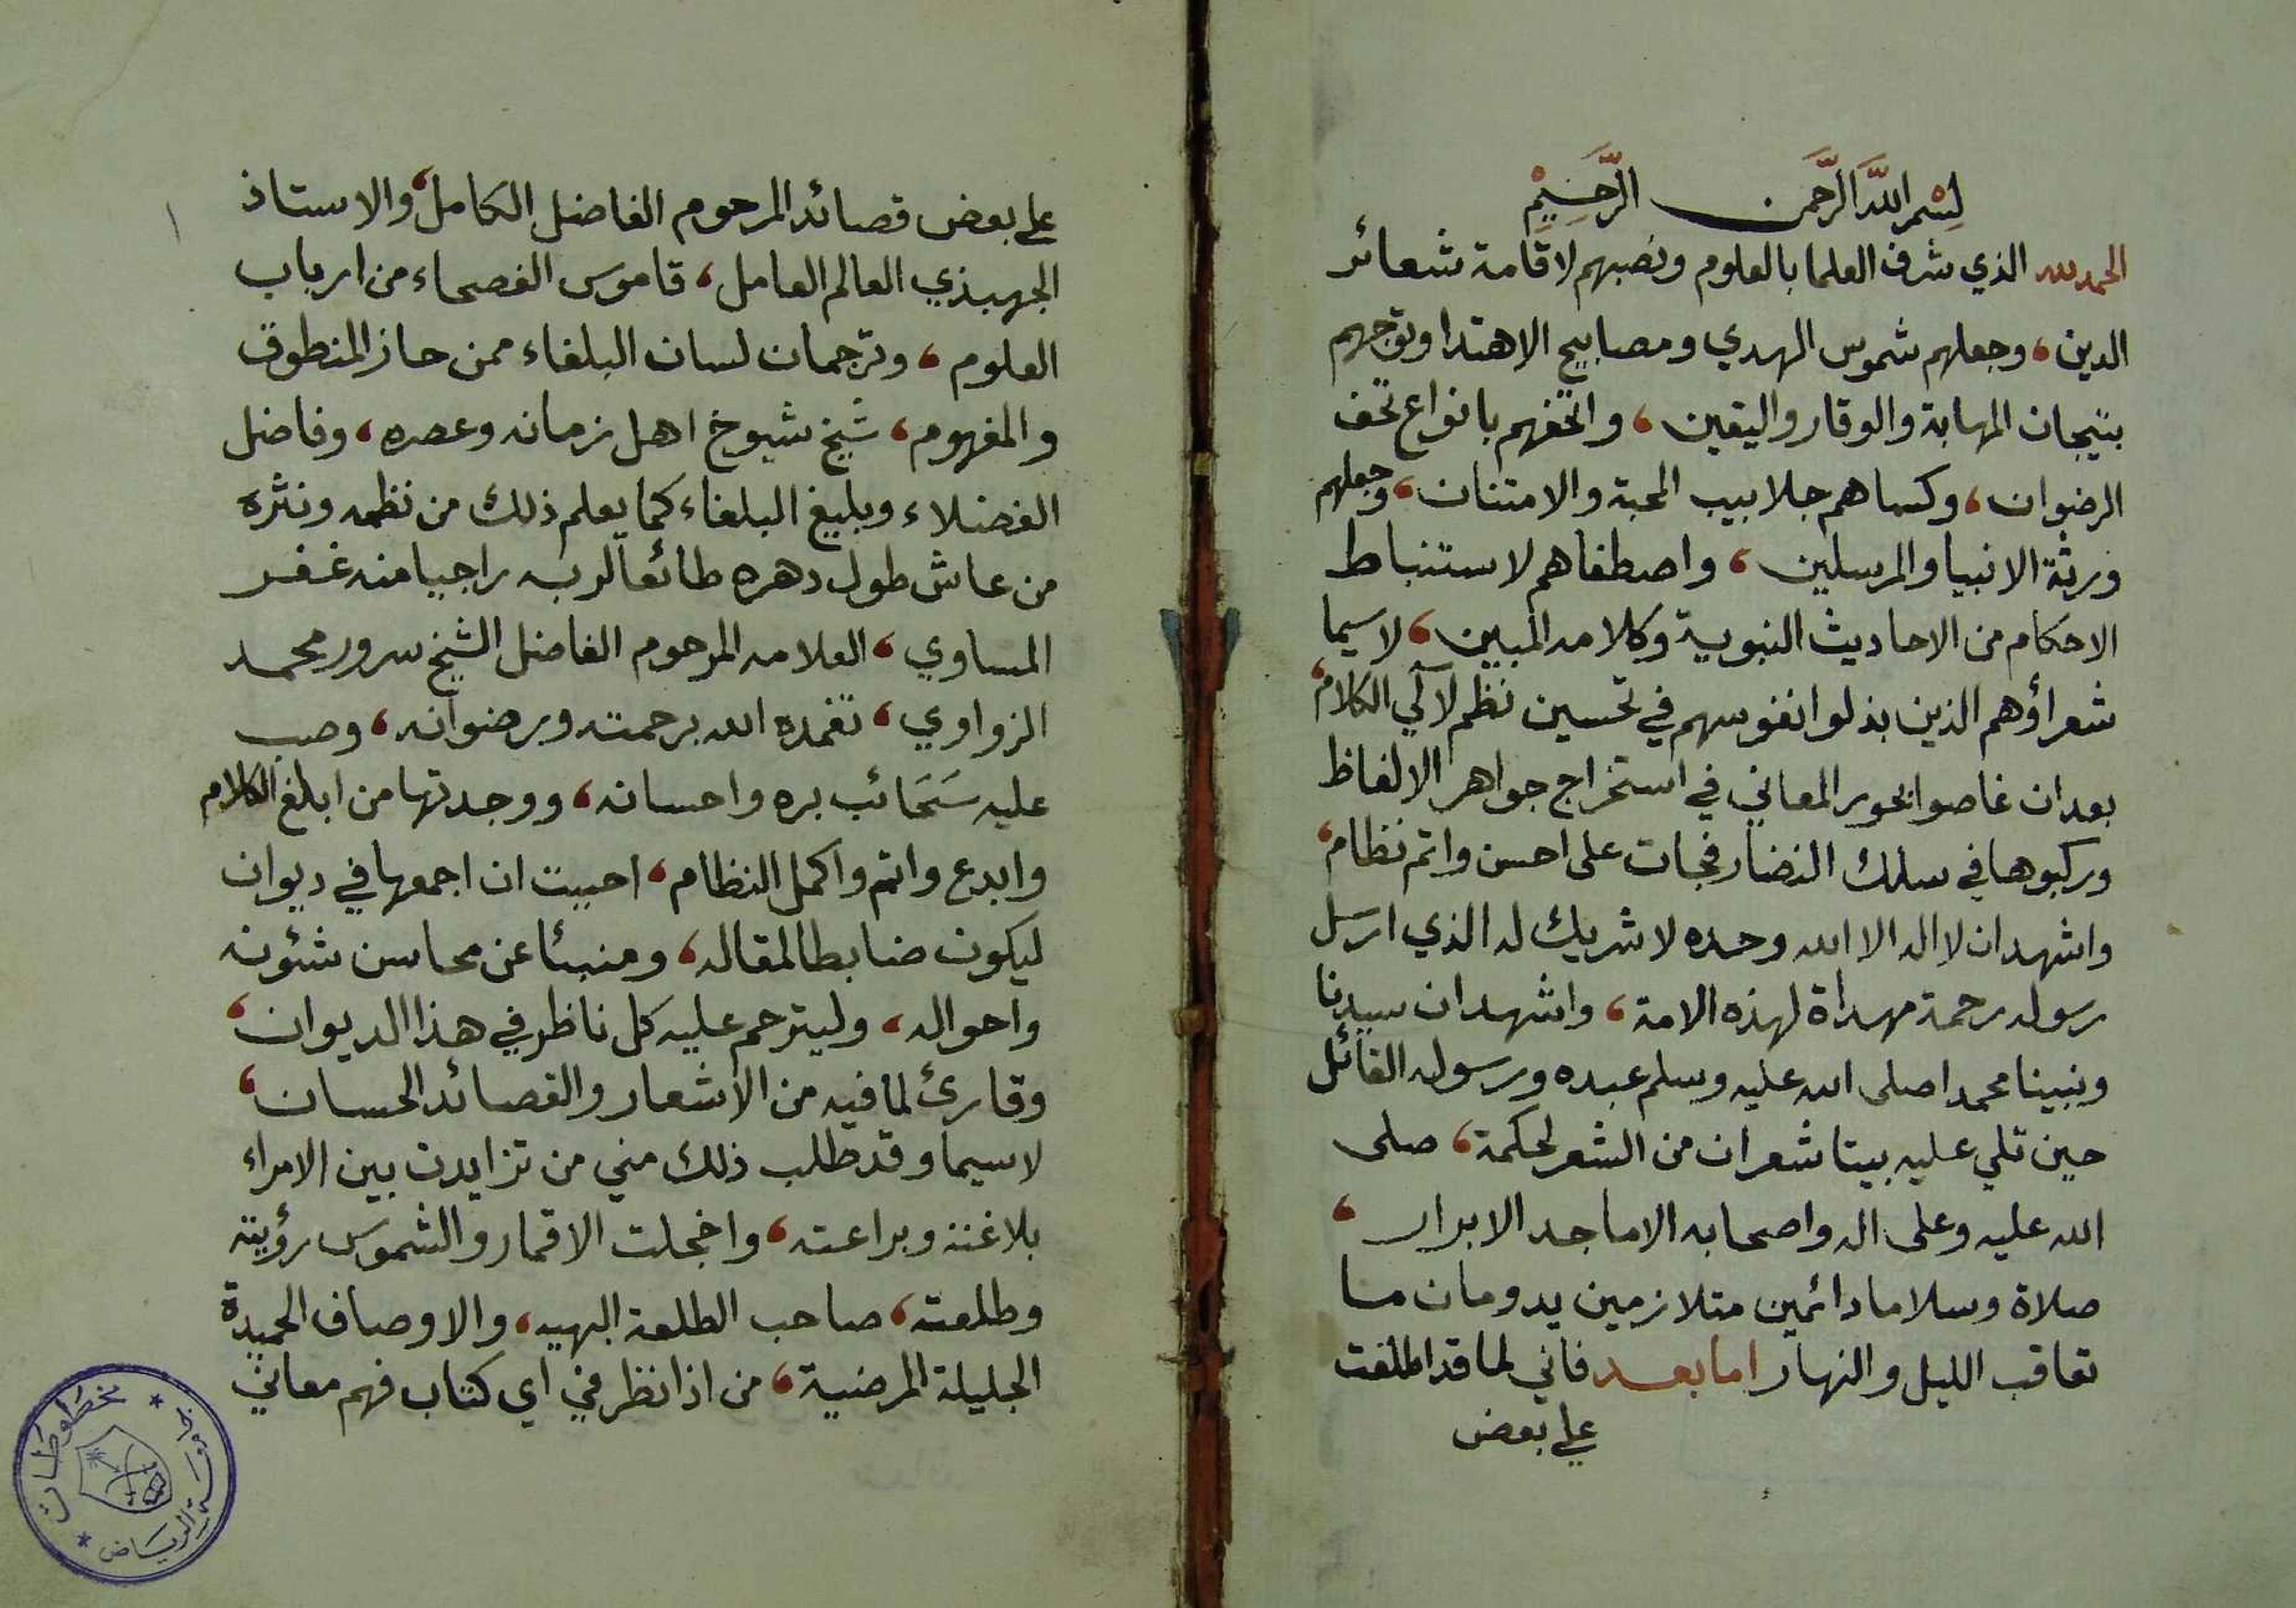 بِسْمِ اللَّهِ الرَّحْمَنِ الرَّحِيمِ
الحمد لله الذي شرف العلما بالعلوم ونصبهم لاقامة شعائر
الدين، وجعلهم شموس الهدي ومصابيح الاهتدا وتوجهم
بتيجان المهابة والوقار واليقين، واتحفهم بانواع تحف
الرضوان، وكساهم جلابيب المحبة والامتنان، وجعلهم
ورثة الانبيا والمرسلين، واصطفاهم لاستنباط
الاحكام من الاحاديث النبوية وكلامه المبين، لاسيما
شعراؤهم الذين بذلوا نفوسهم في تحسين نظم لآلي الكلام،
بعد ان غاصوا بحور المعاني في استخراج جواهر الالفاظ
وركبوها في سلك النضار فجات على احسن واتم نظام،
واشهد ان لا اله الا الله وحده لا شريك له الذي ارسل
رسوله رحمة مهداة لهذه الامة، واشهد ان سيدنا
ونبينا محمدا صلى الله عليه وسلم عبده ورسوله القائل
حين تلي عليه بيتا شعر ان من الشعر لحكمة، صلى
الله عليه وعلى اله واصحابه الاماجد الابرار،
صلاة وسلاما دائمين متلازمين يدومان ما
تعاقب الليل والنهار اما بعد فاني لما قد اطلعت
علي بعض
علي بعض قصائد المرحوم الفاضل الكامل، والاستاذ
الجهبذي العالم العامل، قاموس الفصحاء من ارباب
العلوم، وترجمان لسان البلغاء ممن حاز المنطوق
والمفهوم، شيخ شيوخ اهل زمانه وعصره، وفاضل
الفضلاء وبليغ البلغاء كما يعلم ذلك من نظمه ونثره
من عاش طول دهره طائعا لربه راجيا منه غفر
المساوي، العلامه المرحوم الفاضل الشيخ سرور محمد
الزواوي، تغمده الله برحمته وبرضوانه، وصب
عليه سَحَائب بره واحسانه، ووجدتها من ابلغ الكلام
وابدع واتم واكمل النظام، احببت ان اجمعها في ديوان
ليكون ضابطا لمقاله، ومنبئا عن محاسن شئونه
واحواله، وليترحم عليه كل ناظر في هذا الديوان،
وقارئ لما فيه من الاشعار والقصائد الحسان،
لاسيما وقد طلب ذلك مني من تزايدت بين الامراء
بلاغته وبراعته، واخجلت الاقمار والشموس رؤيته
وطلعته، صاحب الطلعة البهيه، والاوصاف الحميدة
الجليلة المرضية، من اذا نظر في اي كتاب فهم معاني
١
جامعة الرياض
مخطوطات